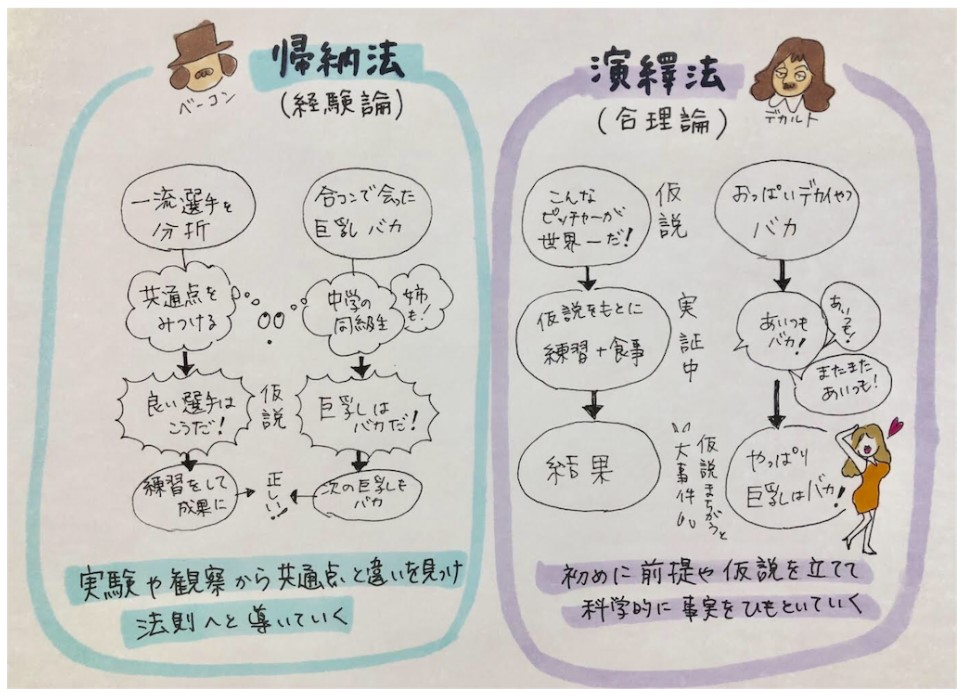 帰納法
(経験論)
ベーコン
一流選手を
分折
共通点を
みつける
良い選手は
こうだ!
練習をして
成果に
合コンで会った
巨乳バカ
中学の
同級生
姉
も!
巨乳は
バカだ!
次の巨乳も
バカ
仮説
正しい!
実験や観察から共通点と違いを見つけ
法則へと導いていく
演繹法
(合理論)
デカルト
こんな
ピッチャーが
世界一だ!
仮説をもとに
練習+食事
結果
仮説
実証中
仮説まちがうと
大事件
おっぱいデカイやつ
バカ
あいつも
バカ!
あいつも!
またまた
あいつも!
やっぱり
巨乳はバカ!
初めに前提や仮説を立てて
科学的に事実をひもといていく